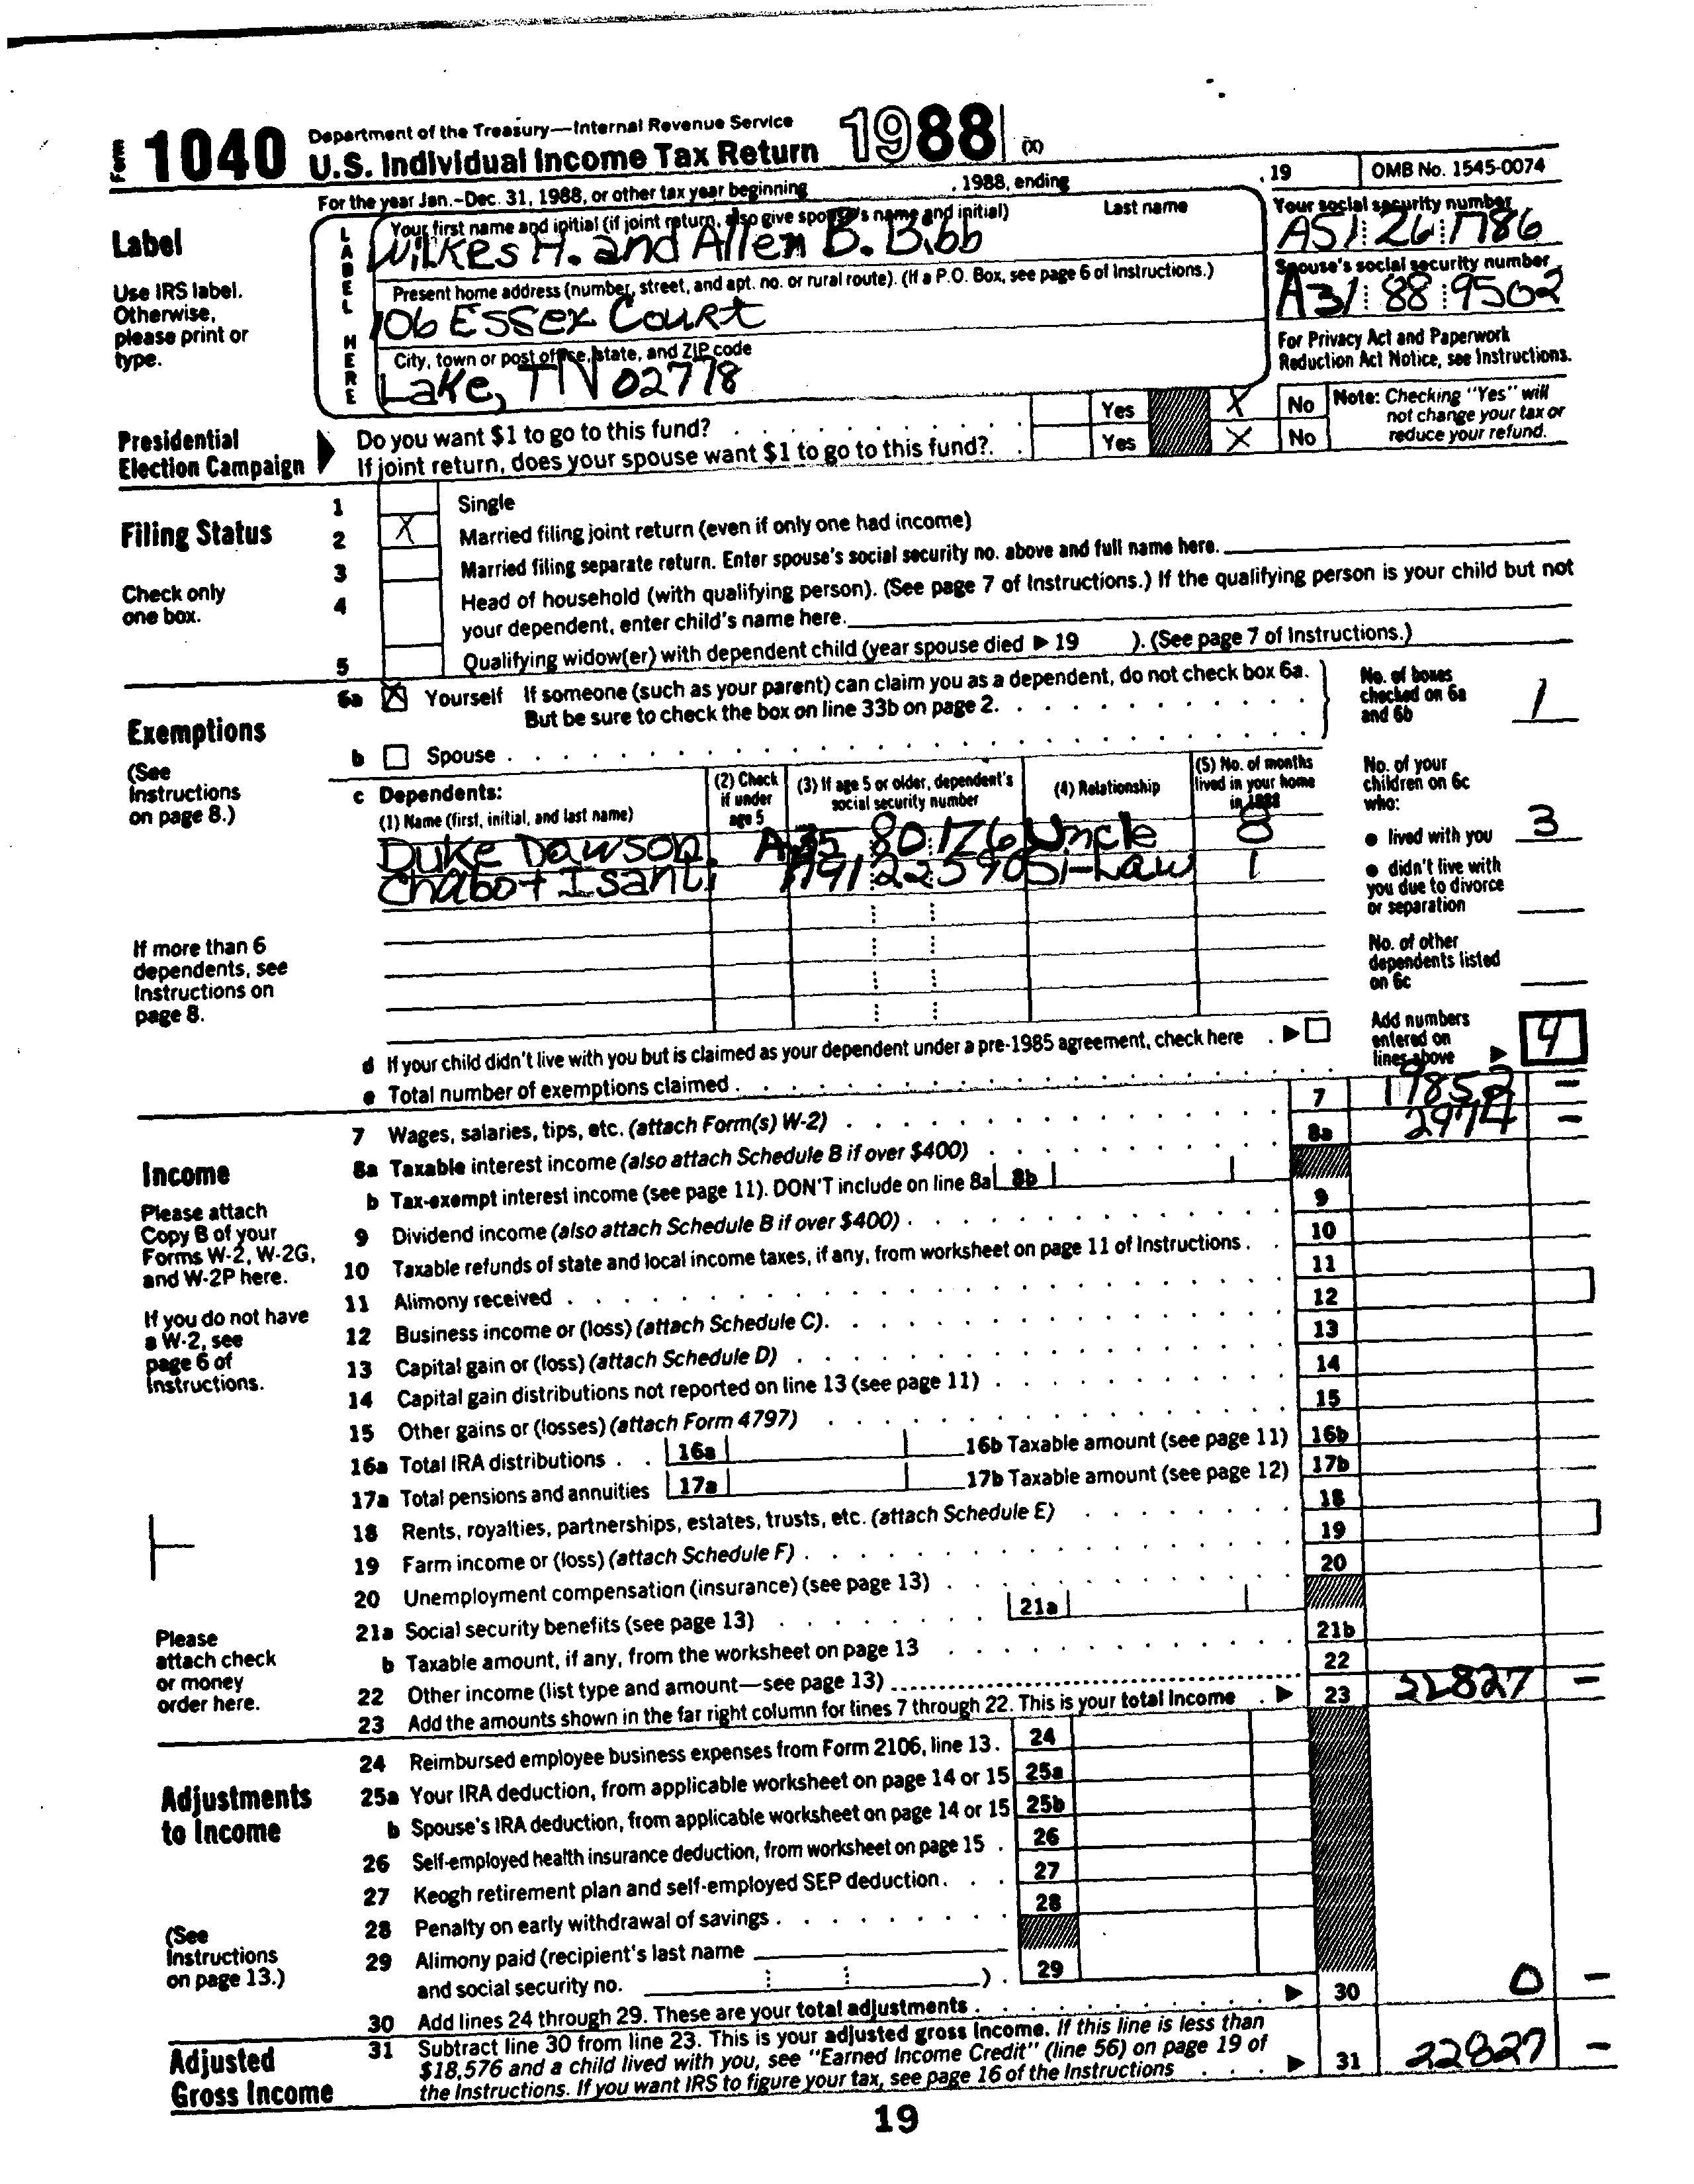 Form 1040 Department of the Treasury—Internal Revenue Service
U.S. Individual Income Tax Return 1988 (X)
For the year Jan.–Dec. 31, 1988, or other tax year beginning , 1988, ending , 19 OMB No. 1545-0074
Label
Use IRS label.
Otherwise,
please print or
type.
LABEL HERE
Your first name and initial (if joint return, also give spouse's name and initial) Last name
Wilkes H. and Allen B. Bibb
Your social security number
A51 26 1786
Present home address (number, street, and apt. no. or rural route). (If a P.O. Box, see page 6 of Instructions.)
106 Essex Court
Spouse's social security number
A31 88 9502
City, town or post office, state, and ZIP code
Lake, TN 02778
For Privacy Act and Paperwork
Reduction Act Notice, see Instructions.
Presidential
Election Campaign
Do you want $1 to go to this fund? Yes X No
If joint return, does your spouse want $1 to go to this fund?. Yes X No
Note: Checking "Yes" will
not change your tax or
reduce your refund.
Filing Status
Check only
one box.
1 Single
2 X Married filing joint return (even if only one had income)
3 Married filing separate return. Enter spouse's social security no. above and full name here.
4 Head of household (with qualifying person). (See page 7 of Instructions.) If the qualifying person is your child but not
your dependent, enter child's name here.
5 Qualifying widow(er) with dependent child (year spouse died ▶ 19 ). (See page 7 of Instructions.)
Exemptions
(See
Instructions
on page 8.)
6a X Yourself If someone (such as your parent) can claim you as a dependent, do not check box 6a.
But be sure to check the box on line 33b on page 2.
b Spouse
No. of boxes
checked on 6a
and 6b 1
c Dependents:
(1) Name (first, initial, and last name)
(2) Check
if under
age 5
(3) If age 5 or older, dependent's
social security number
(4) Relationship
(5) No. of months
lived in your home
in 1988
Duke Dawson A35 80 176 Uncle 8
Chabot Isanti 2590 Si-Law 1
No. of your
children on 6c
who:
● lived with you 3
● didn't live with
you due to divorce
or separation
No. of other
dependents listed
on 6c
If more than 6
dependents, see
Instructions on
page 8.
d If your child didn't live with you but is claimed as your dependent under a pre-1985 agreement, check here ▶
e Total number of exemptions claimed
Add numbers
entered on
lines above ▶ 4
Income
Please attach
Copy B of your
Forms W-2, W-2G,
and W-2P here.
If you do not have
a W-2, see
page 6 of
Instructions.
Please
attach check
or money
order here.
7 Wages, salaries, tips, etc. (attach Form(s) W-2) 7 19852 –
8a Taxable interest income (also attach Schedule B if over $400) 8a 2974 –
b Tax-exempt interest income (see page 11). DON'T include on line 8a 8b
9 Dividend income (also attach Schedule B if over $400) 9
10 Taxable refunds of state and local income taxes, if any, from worksheet on page 11 of Instructions 10
11 Alimony received 11
12 Business income or (loss) (attach Schedule C). 12
13 Capital gain or (loss) (attach Schedule D) 13
14 Capital gain distributions not reported on line 13 (see page 11) 14
15 Other gains or (losses) (attach Form 4797) 15
16a Total IRA distributions 16a 16b Taxable amount (see page 11) 16b
17a Total pensions and annuities 17a 17b Taxable amount (see page 12) 17b
18 Rents, royalties, partnerships, estates, trusts, etc. (attach Schedule E) 18
19 Farm income or (loss) (attach Schedule F) 19
20 Unemployment compensation (insurance) (see page 13) 20
21a Social security benefits (see page 13) 21a
b Taxable amount, if any, from the worksheet on page 13 21b
22 Other income (list type and amount—see page 13) 22
23 Add the amounts shown in the far right column for lines 7 through 22. This is your total income ▶ 23 22827 –
Adjustments
to Income
(See
Instructions
on page 13.)
24 Reimbursed employee business expenses from Form 2106, line 13. 24
25a Your IRA deduction, from applicable worksheet on page 14 or 15 25a
b Spouse's IRA deduction, from applicable worksheet on page 14 or 15 25b
26 Self-employed health insurance deduction, from worksheet on page 15 26
27 Keogh retirement plan and self-employed SEP deduction. 27
28 Penalty on early withdrawal of savings 28
29 Alimony paid (recipient's last name
and social security no. ) 29
30 Add lines 24 through 29. These are your total adjustments ▶ 30 0 –
Adjusted
Gross Income
31 Subtract line 30 from line 23. This is your adjusted gross income. If this line is less than
$18,576 and a child lived with you, see "Earned Income Credit" (line 56) on page 19 of
the Instructions. If you want IRS to figure your tax, see page 16 of the Instructions ▶ 31 22827 –
19